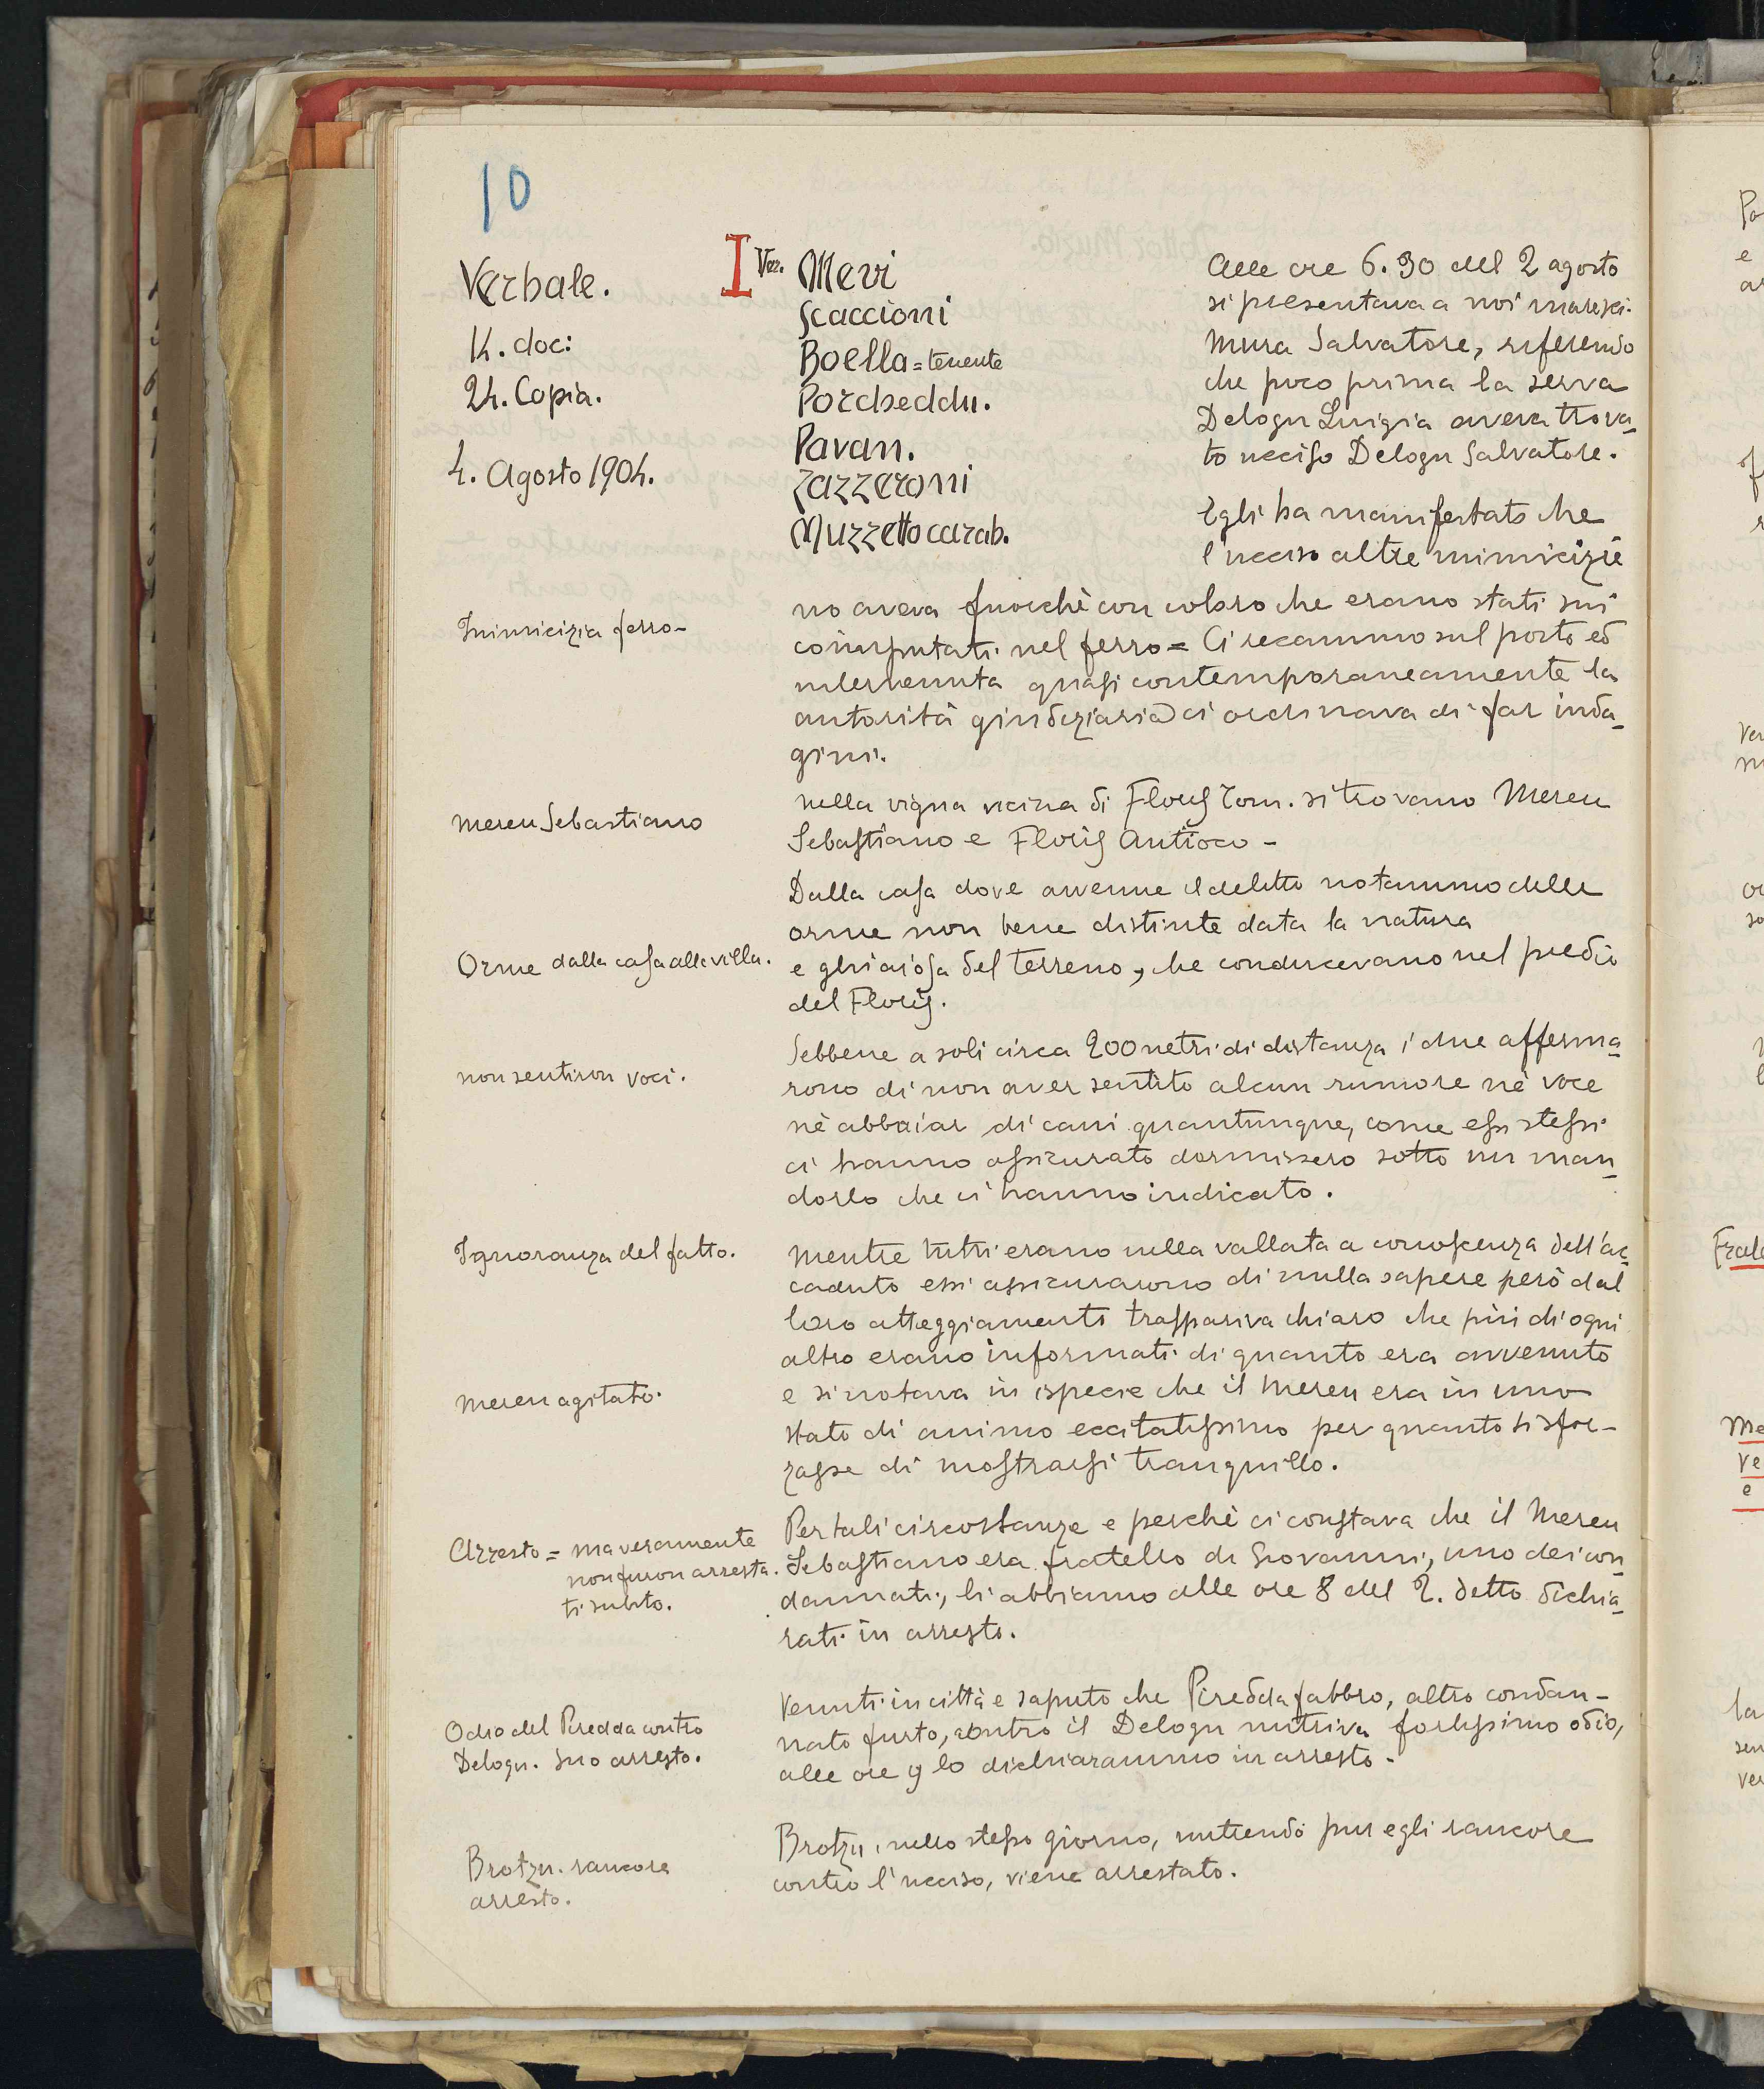 10
Verbale.
K. doc:
24. Copia.
4. Agosto 1904.
I Ver. Mevi
Scaccioni
Boella = tenente
Porcheddu.
Pavan.
Zazzeroni
Muzzetto carab.
Alle ore 6.30 del 2 agosto
si presentava a noi maresci.
Mura Salvatore, riferendo
che poco prima la serva
Delogu Luigia aveva trova_
to ucciso Delogu Salvatore.
Egli ha manifestato che
l'ucciso altre inimicizie
Inimicizia ferro-
no aveva fuorchè con coloro che erano stati sui
coimputati nel ferro = Ci recammo sul posto ed
intervenuta quasi contemporaneamente la
autorità giudiziaria ci ordinava di far inda_
gini.
Mereu Sebastiano
nella vigna vicina di Floris Tom. si trovano Mereu
Sebastiano e Floris Antioco -
Dalla casa dove avvenne il delitto notammo delle
orme non bene distinte data la natura
Orme dalla casa alla villa.
e ghiaiosa del terreno, che conducevano nel predio
del Floris.
non sentiron voci.
Sebbene a soli circa 200 metri di distanza i due afferma_
rono di non aver sentito alcun rumore nè voce
nè abbaiar di cani quantunque, come essi stessi
ci hanno assicurato dormissero sotto un man_
dorlo che ci hanno indicato.
Ignoranza del fatto.
Mentre tutti erano nella vallata a conoscenza dell'ac_
caduto essi assicurarono di nulla sapere però dal
loro atteggiamento traspariva chiaro che più di ogni
altro erano informati di quanto era avvenuto
Mereu agitato.
e si notava in ispecie che il Mereu era in uno
stato di animo eccitatissimo per quanto si sfor-
zasse di mostrarsi tranquillo.
Arresto = ma veramente
non furon arresta.
ti subito.
Per tali circostanze e perchè ci constava che il Mereu
Sebastiano era fratello di Giovanni, uno dei con_
dannati, li abbiamo alle ore 8 del 2. detto dichia_
rati in arresto.
Odio del Piredda contro
Delogu. Suo arresto.
Venuti in città e saputo che Piredda fabbro, altro condan-
nato furto, contro il Delogu nutriva fortissimo odio,
alle ore 9 lo dichiarammo in arresto.
Brotzu. rancore
arresto.
Brotzu, nello stesso giorno, nutrendo pur egli rancore
contro l'ucciso, viene arrestato.